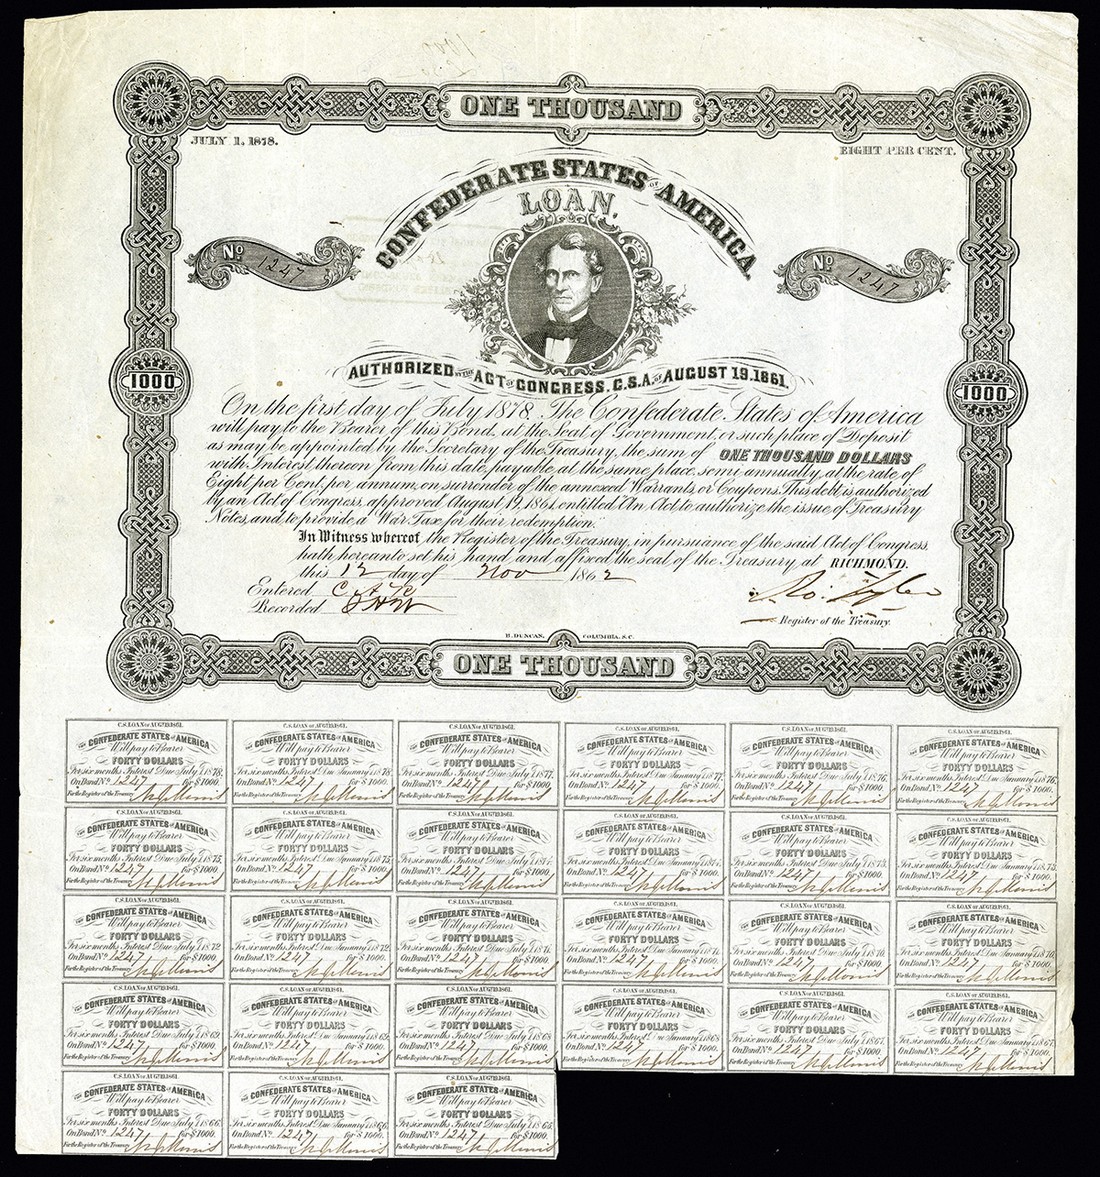 ONE THOUSAND
JULY 1, 1878.
EIGHT PER CENT.
CONFEDERATE STATES OF AMERICA
LOAN,
No 1247
No 1247
AUTHORIZED BY THE ACT OF CONGRESS. C.S.A. OF AUGUST 19.1861.
1000
1000
On the first day of July 1878 The Confederate States of America
will pay to the Bearer of this Bond, at the Seat of Government, or such place of Deposit
as may be appointed by the Secretary of the Treasury, the sum of ONE THOUSAND DOLLARS
with Interest thereon from this date, payable at the same place, semi-annually, at the rate of
Eight per Cent, per annum, on surrender of the annexed Warrants or Coupons. This debt is authorized
by an Act of Congress, approved August 19, 1861, entitled "An Act to authorize the issue of Treasury
Notes, and to provide a War Tax for their redemption."
In Witness whereof the Register of the Treasury, in pursuance of the said Act of Congress,
hath hereunto set his hand and affixed the seal of the Treasury, at RICHMOND.
this 12 day of Nov 1862
Entered
Recorded
Ro. Tyler
Register of the Treasury.
B. DUNCAN, COLUMBIA, S.C.
ONE THOUSAND
C.S. LOAN OF AUG. 19, 1861. C.S. LOAN OF AUG. 19, 1861. C.S. LOAN OF AUG. 19, 1861. C.S. LOAN OF AUG. 19, 1861. C.S. LOAN OF AUG. 19, 1861. C.S. LOAN OF AUG. 19, 1861.
THE CONFEDERATE STATES OF AMERICA THE CONFEDERATE STATES OF AMERICA THE CONFEDERATE STATES OF AMERICA THE CONFEDERATE STATES OF AMERICA THE CONFEDERATE STATES OF AMERICA THE CONFEDERATE STATES OF AMERICA
Will pay to Bearer Will pay to Bearer Will pay to Bearer Will pay to Bearer Will pay to Bearer Will pay to Bearer
FORTY DOLLARS FORTY DOLLARS FORTY DOLLARS FORTY DOLLARS FORTY DOLLARS FORTY DOLLARS
For six months Interest Due July 1 1878. For six months Interest Due January 1 1878. For six months Interest Due July 1 1877. For six months Interest Due January 1 1877. For six months Interest Due July 1 1876. For six months Interest Due January 1 1876.
On Bond No. 1247 for $1000. On Bond No. 1247 for $1000. On Bond No. 1247 for $1000. On Bond No. 1247 for $1000. On Bond No. 1247 for $1000. On Bond No. 1247 for $1000.
For the Register of the Treasury For the Register of the Treasury For the Register of the Treasury For the Register of the Treasury For the Register of the Treasury For the Register of the Treasury
C.S. LOAN OF AUG. 19, 1861. C.S. LOAN OF AUG. 19, 1861. C.S. LOAN OF AUG. 19, 1861. C.S. LOAN OF AUG. 19, 1861. C.S. LOAN OF AUG. 19, 1861. C.S. LOAN OF AUG. 19, 1861.
THE CONFEDERATE STATES OF AMERICA THE CONFEDERATE STATES OF AMERICA THE CONFEDERATE STATES OF AMERICA THE CONFEDERATE STATES OF AMERICA THE CONFEDERATE STATES OF AMERICA THE CONFEDERATE STATES OF AMERICA
Will pay to Bearer Will pay to Bearer Will pay to Bearer Will pay to Bearer Will pay to Bearer Will pay to Bearer
FORTY DOLLARS FORTY DOLLARS FORTY DOLLARS FORTY DOLLARS FORTY DOLLARS FORTY DOLLARS
For six months Interest Due July 1 1875. For six months Interest Due January 1 1875. For six months Interest Due July 1 1874. For six months Interest Due January 1 1874. For six months Interest Due July 1 1873. For six months Interest Due January 1 1873.
On Bond No. 1247 for $1000. On Bond No. 1247 for $1000. On Bond No. 1247 for $1000. On Bond No. 1247 for $1000. On Bond No. 1247 for $1000. On Bond No. 1247 for $1000.
For the Register of the Treasury For the Register of the Treasury For the Register of the Treasury For the Register of the Treasury For the Register of the Treasury For the Register of the Treasury
C.S. LOAN OF AUG. 19, 1861. C.S. LOAN OF AUG. 19, 1861. C.S. LOAN OF AUG. 19, 1861. C.S. LOAN OF AUG. 19, 1861. C.S. LOAN OF AUG. 19, 1861. C.S. LOAN OF AUG. 19, 1861.
THE CONFEDERATE STATES OF AMERICA THE CONFEDERATE STATES OF AMERICA THE CONFEDERATE STATES OF AMERICA THE CONFEDERATE STATES OF AMERICA THE CONFEDERATE STATES OF AMERICA THE CONFEDERATE STATES OF AMERICA
Will pay to Bearer Will pay to Bearer Will pay to Bearer Will pay to Bearer Will pay to Bearer Will pay to Bearer
FORTY DOLLARS FORTY DOLLARS FORTY DOLLARS FORTY DOLLARS FORTY DOLLARS FORTY DOLLARS
For six months Interest Due July 1 1872. For six months Interest Due January 1 1872. For six months Interest Due July 1 1871. For six months Interest Due January 1 1871. For six months Interest Due July 1 1870. For six months Interest Due January 1 1870.
On Bond No. 1247 for $1000. On Bond No. 1247 for $1000. On Bond No. 1247 for $1000. On Bond No. 1247 for $1000. On Bond No. 1247 for $1000. On Bond No. 1247 for $1000.
For the Register of the Treasury For the Register of the Treasury For the Register of the Treasury For the Register of the Treasury For the Register of the Treasury For the Register of the Treasury
C.S. LOAN OF AUG. 19, 1861. C.S. LOAN OF AUG. 19, 1861. C.S. LOAN OF AUG. 19, 1861. C.S. LOAN OF AUG. 19, 1861. C.S. LOAN OF AUG. 19, 1861. C.S. LOAN OF AUG. 19, 1861.
THE CONFEDERATE STATES OF AMERICA THE CONFEDERATE STATES OF AMERICA THE CONFEDERATE STATES OF AMERICA THE CONFEDERATE STATES OF AMERICA THE CONFEDERATE STATES OF AMERICA THE CONFEDERATE STATES OF AMERICA
Will pay to Bearer Will pay to Bearer Will pay to Bearer Will pay to Bearer Will pay to Bearer Will pay to Bearer
FORTY DOLLARS FORTY DOLLARS FORTY DOLLARS FORTY DOLLARS FORTY DOLLARS FORTY DOLLARS
For six months Interest Due July 1 1869. For six months Interest Due January 1 1869. For six months Interest Due July 1 1868. For six months Interest Due January 1 1868. For six months Interest Due July 1 1867. For six months Interest Due January 1 1867.
On Bond No. 1247 for $1000. On Bond No. 1247 for $1000. On Bond No. 1247 for $1000. On Bond No. 1247 for $1000. On Bond No. 1247 for $1000. On Bond No. 1247 for $1000.
For the Register of the Treasury For the Register of the Treasury For the Register of the Treasury For the Register of the Treasury For the Register of the Treasury For the Register of the Treasury
C.S. LOAN OF AUG. 19, 1861. C.S. LOAN OF AUG. 19, 1861. C.S. LOAN OF AUG. 19, 1861.
THE CONFEDERATE STATES OF AMERICA THE CONFEDERATE STATES OF AMERICA THE CONFEDERATE STATES OF AMERICA
Will pay to Bearer Will pay to Bearer Will pay to Bearer
FORTY DOLLARS FORTY DOLLARS FORTY DOLLARS
For six months Interest Due July 1 1866. For six months Interest Due January 1 1866. For six months Interest Due July 1 1865.
On Bond No. 1247 for $1000. On Bond No. 1247 for $1000. On Bond No. 1247 for $1000.
For the Register of the Treasury For the Register of the Treasury For the Register of the Treasury